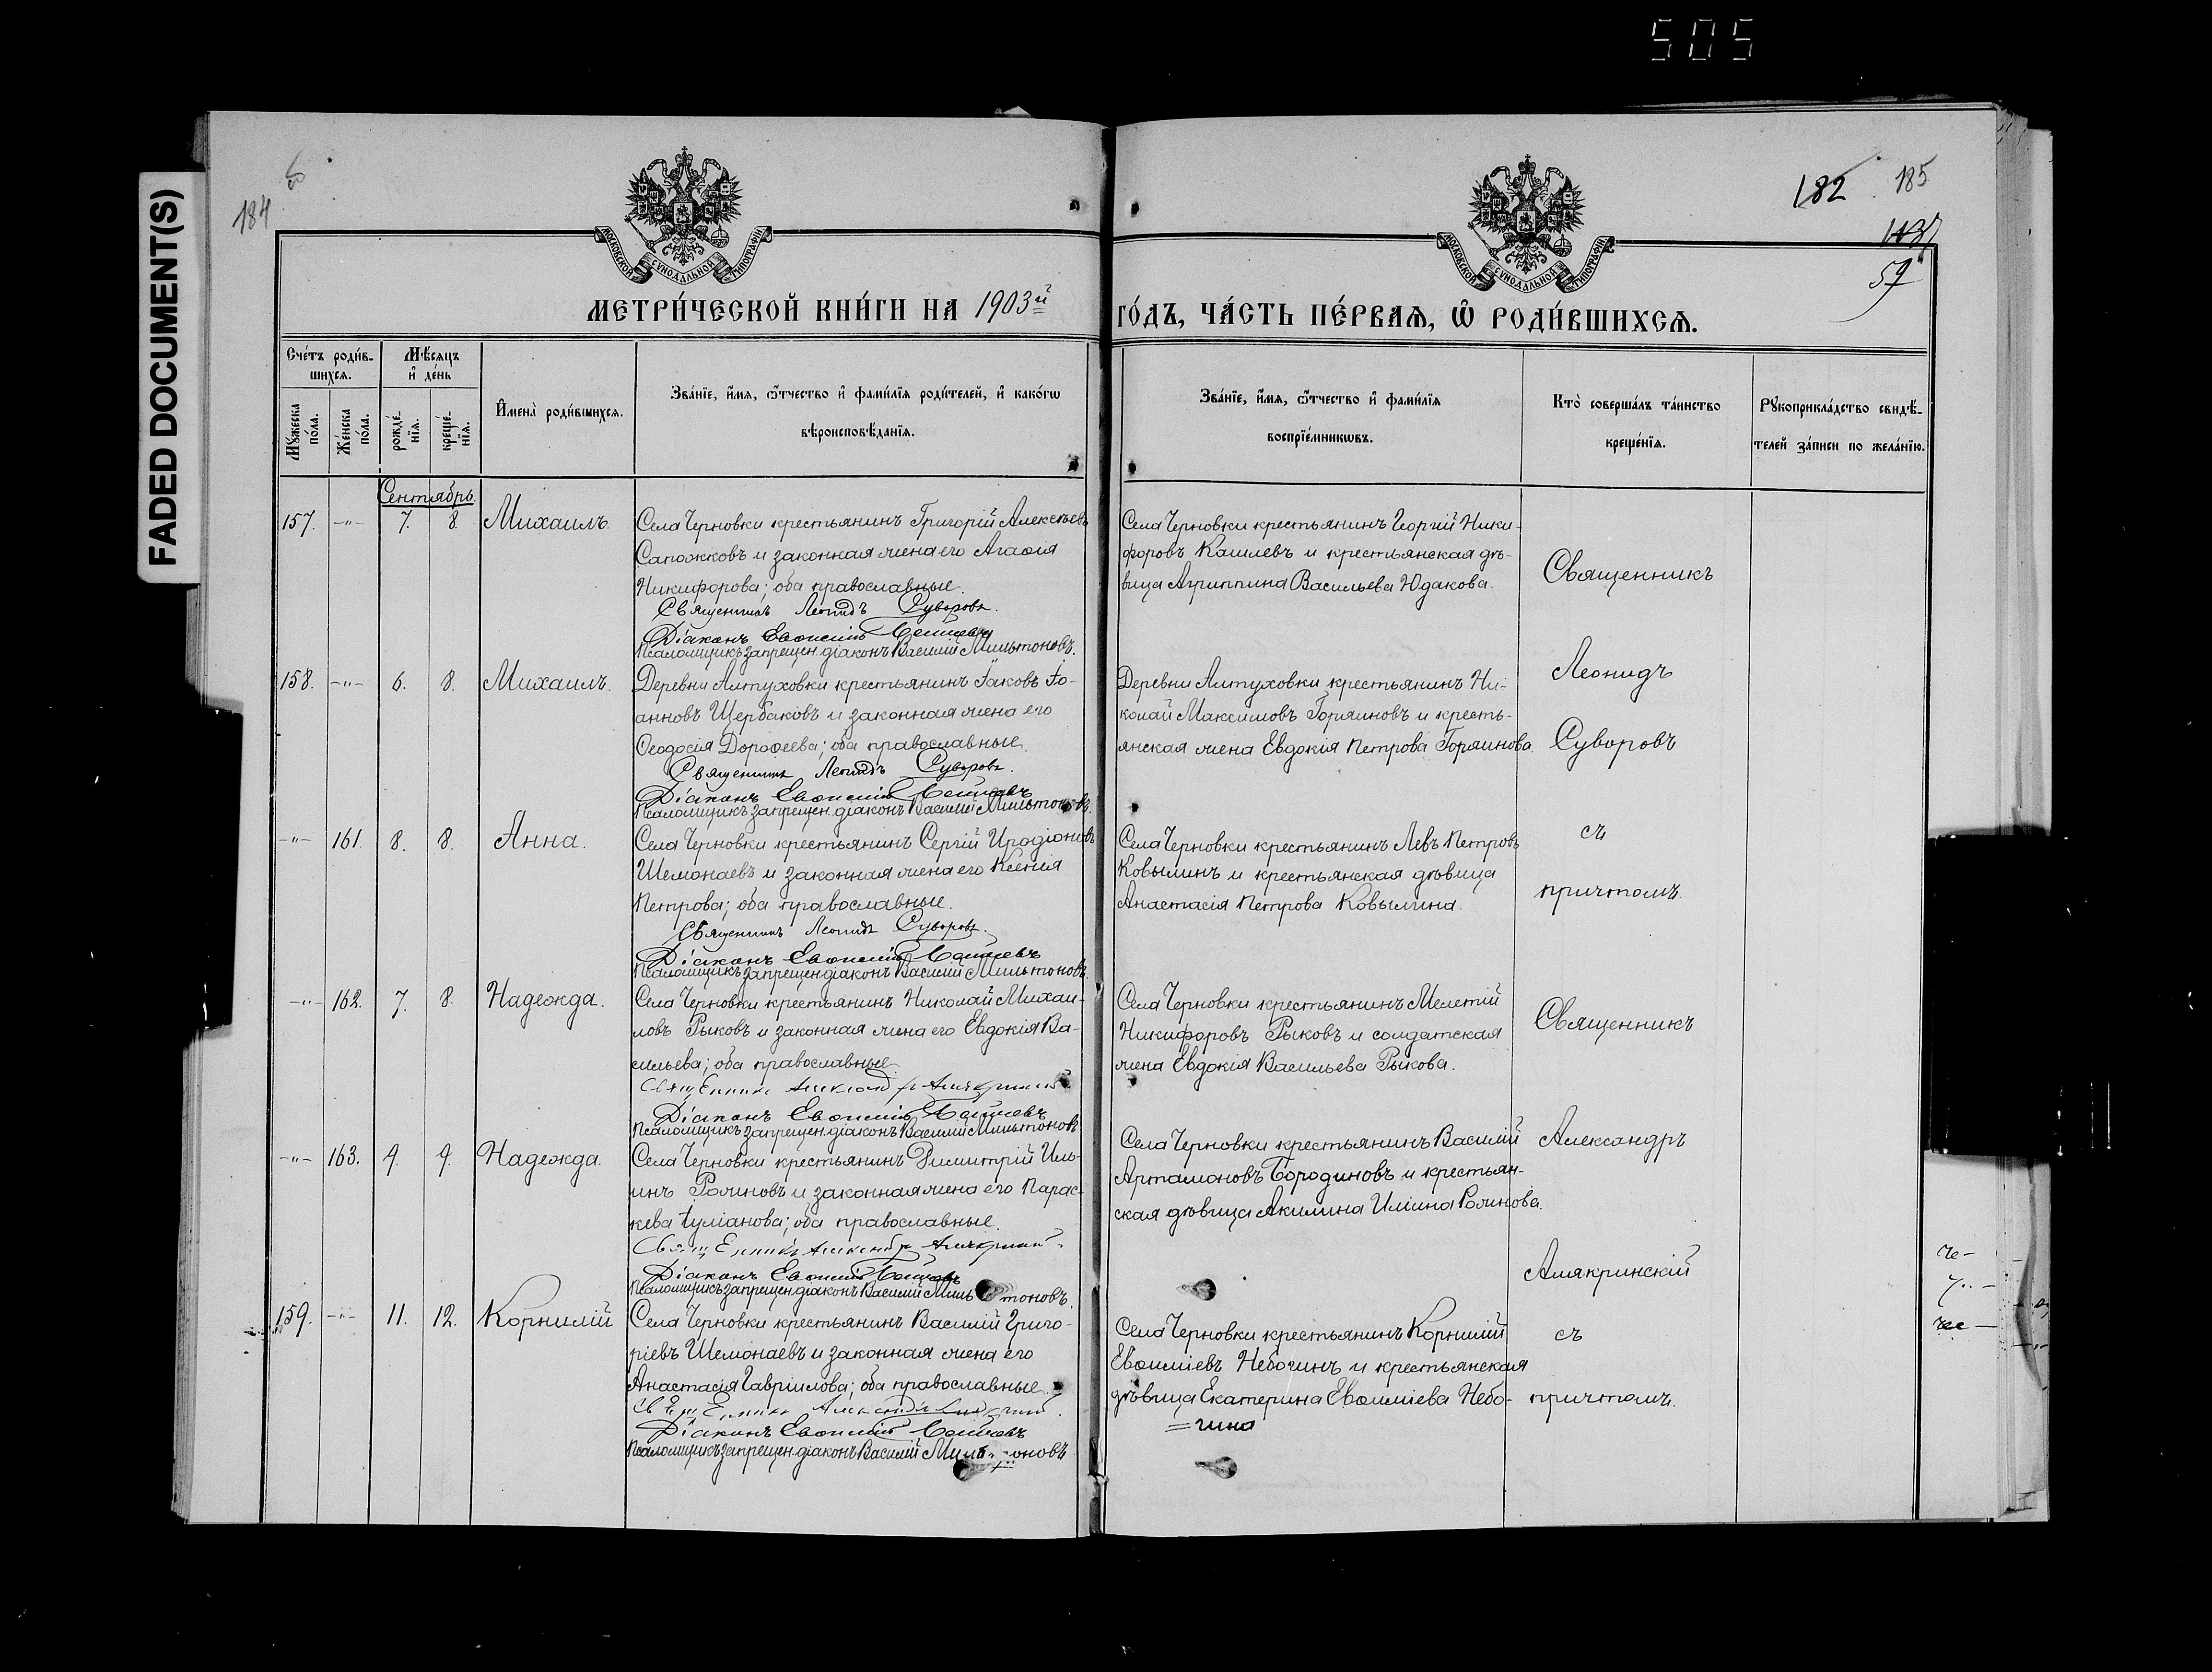 505
FADED DOCUMENT(S)
184
182 185
57
МОСКОВСКОЙ СѴНОДАЛЬНОЙ ТИПОГРАФІИ
МОСКОВСКОЙ СѴНОДАЛЬНОЙ ТИПОГРАФІИ
МЕТРИ́ЧЕСКОЙ КНИ́ГИ НА 1903й ГО́ДЪ, ЧА́СТЬ ПЕ́РВАѦ, Ѡ҆ РОДИ́ВШИХСѦ.
Сче́тъ роди́в-
шихсѧ.
Мꙋжеска по́ла.
Же́нска по́ла.
Мѣ́сѧцъ
и҆ де́нь
рожде́-
нїѧ.
креще́-
нїѧ.
И҆мена̀ роди́вшихсѧ.
Зва́нїе, и҆́мѧ, ѻ҆́тчество и҆ фами́лїѧ роди́телей, и҆ како́гѡ
вѣроисповѣ́данїѧ.
Зва́нїе, и҆́мѧ, ѻ҆́тчество и҆ фами́лїѧ
воспрїе́мникѡвъ.
Кто̀ соверша́лъ та́инство
креще́нїѧ.
Рꙋкоприкла́дство свидѣ́-
телей за́писи по жела́нїю.
Сентябрь.
157. -"- 7. 8. Михаилъ.
Села Черновки крестьянинъ Григорій Алексѣевъ
Сапожковъ и законная жена его Агаѳія
Никифорова; оба православные.
Священникъ Леонидъ Суворовъ.
Діаконъ Евѳимій
Псаломщикъ запрещен. діаконъ Василій Мильтоновъ.
Села Черновки крестьянинъ Георгій Ники-
форовъ Кашлевъ и крестьянская дѣ-
вица Агриппина Васильева Юдакова.
Священникъ
Леонидъ
Суворовъ
съ
причтомъ.
158. -"- 6. 8. Михаилъ.
Деревни Алтуховки крестьянинъ Іаковъ Іо-
анновъ Щербаковъ и законная жена его
Ѳеодосія Дороѳеева; оба православные.
Священникъ Леонидъ Суворовъ.
Діаконъ Евѳимій
Псаломщикъ запрещен. діаконъ Василій Мильтоновъ.
Деревни Алтуховки крестьянинъ Ни-
колай Максимовъ Горяиновъ и кресть-
янская жена Евдокія Петрова Горяинова.
-"- 161. 8. 8. Анна.
Села Черновки крестьянинъ Сергій Иродіоновъ
Шемонаевъ и законная жена его Ксенія
Петрова; оба православные.
Священникъ Леонидъ Суворовъ.
Діаконъ Евѳимій
Псаломщикъ запрещен. діаконъ Василій Мильтоновъ.
Села Черновки крестьянинъ Левъ Петровъ
Ковылинъ и крестьянская дѣвица
Анастасія Петрова Ковылина.
-"- 162. 7. 8. Надежда.
Села Черновки крестьянинъ Николай Михаи-
ловъ Рыковъ и законная жена его Евдокія Ва-
сильева; оба православные.
Священникъ Александръ Алякринскій
Діаконъ Евѳимій
Псаломщикъ запрещен. діаконъ Василій Мильтоновъ
Села Черновки крестьянинъ Мелетій
Никифоровъ Рыковъ и солдатская
жена Евдокія Васильева Рыкова.
Священникъ
Александръ
Алякринскій
съ
причтомъ.
-"- 163. 9. 9. Надежда.
Села Черновки крестьянинъ Димитрій Иль-
инъ Роминовъ и законная жена его Парас-
кева Іуліанова; оба православные.
Священникъ Александръ Алякринскій.
Діаконъ Евѳимій
Псаломщикъ запрещен. діаконъ Василій Мильтоновъ.
Села Черновки крестьянинъ Василій
Артамоновъ Бородиновъ и крестьян-
ская дѣвица Акилина Иліина Роминова.
159. -"- 11. 12. Корнилій
Села Черновки крестьянинъ Василій Григо-
ріевъ Шемонаевъ и законная жена его
Анастасія Гавріилова; оба православные.
Священникъ Александръ Алякринскій.
Діаконъ Евѳимій
Псаломщикъ запрещен. діаконъ Василій Мильтоновъ
Села Черновки крестьянинъ Корнилій
Евѳиміевъ Небогинъ и крестьянская
дѣвица Екатерина Евѳиміева Небо-
=гина